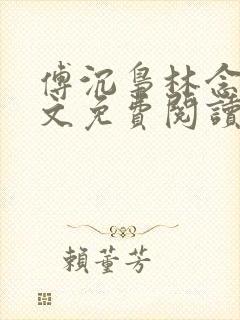 傅沉梟林念
文免費閱讀
賴董芳